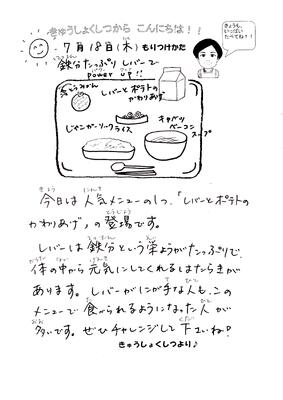 きゅうしょくしつから こんにちは！！
きょうも、
いっぱい
たべてね！！
7月18日(木) もりつけかた
鉄分たっぷり レバーで
power up!!
れいとうみかん
レバーとポテトの
かわりあげ
じゃこガーリックライス
キャベツ
ベーコン
スープ
今日は 人気メニューの1つ、「レバーとポテトの
かわりあげ」の登場です。
レバーは 鉄分という栄ようがたっぷりで、
体の中から 元気にしてくれるはたらきが
あります。 レバーがにが手な人も、この
メニューで 食べられるようになった人が
多いです。 ぜひチャレンジして下さいね♪
きゅうしょくしつより♪